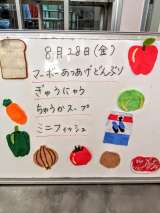 8月28日(金)
マーボーあつあげどんぶり
ぎゅうにゅう
ちゅうかスープ
ミニフィッシュ